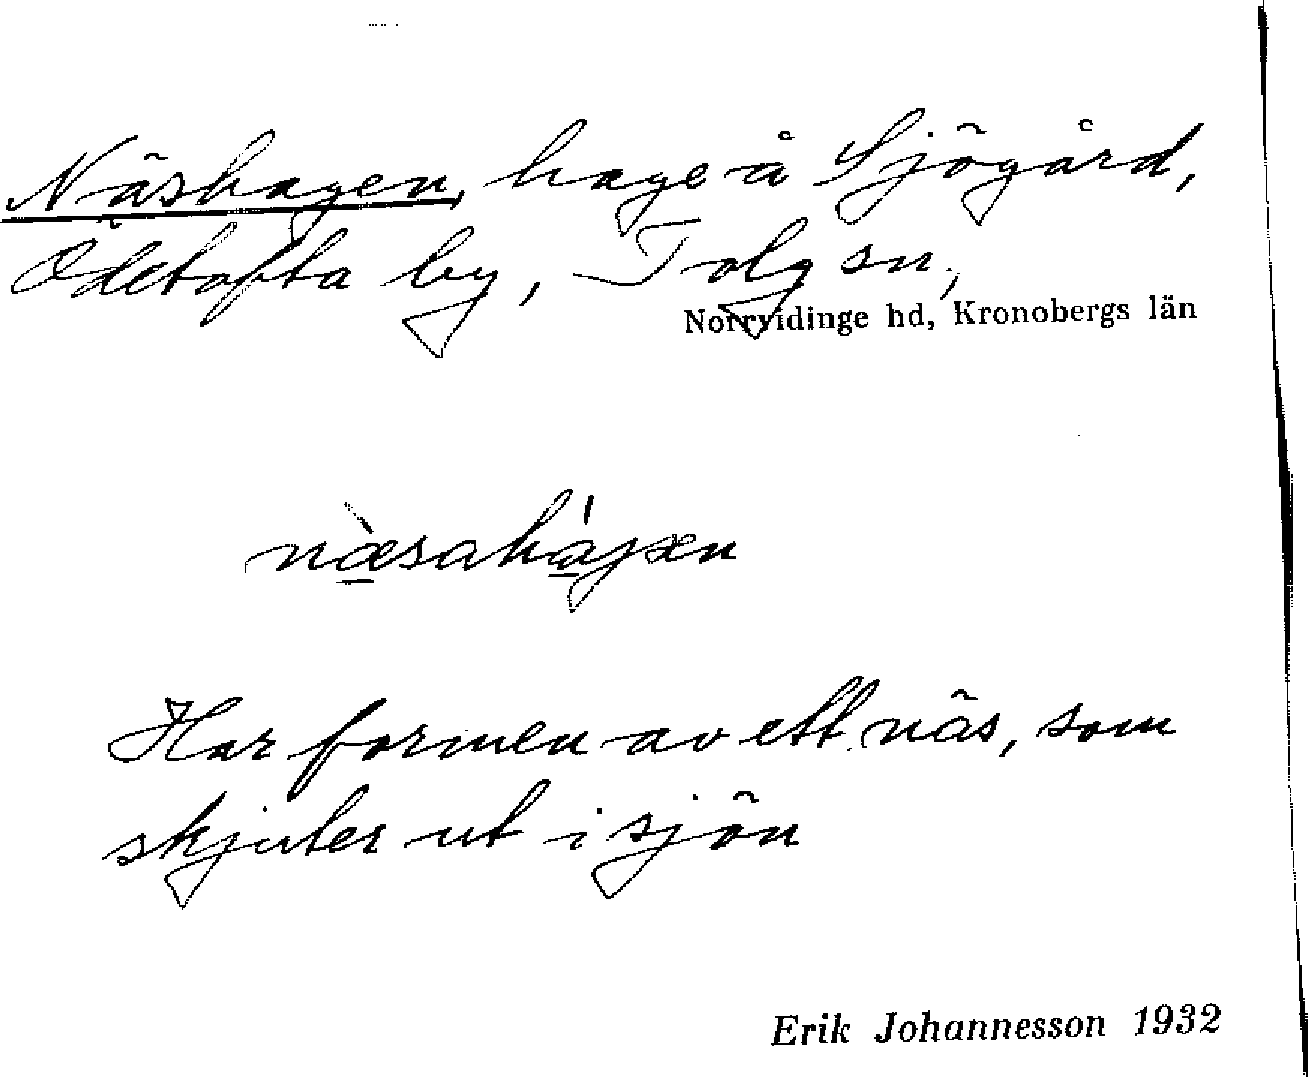 Näshagen, hage å Sjögård,
Ödetofta by, Tolg sn,
Norrvidinge hd, Kronobergs län
næ̀sahájæn
Har formen av ett näs, som
skjuter ut i sjön
Erik Johannesson 1932